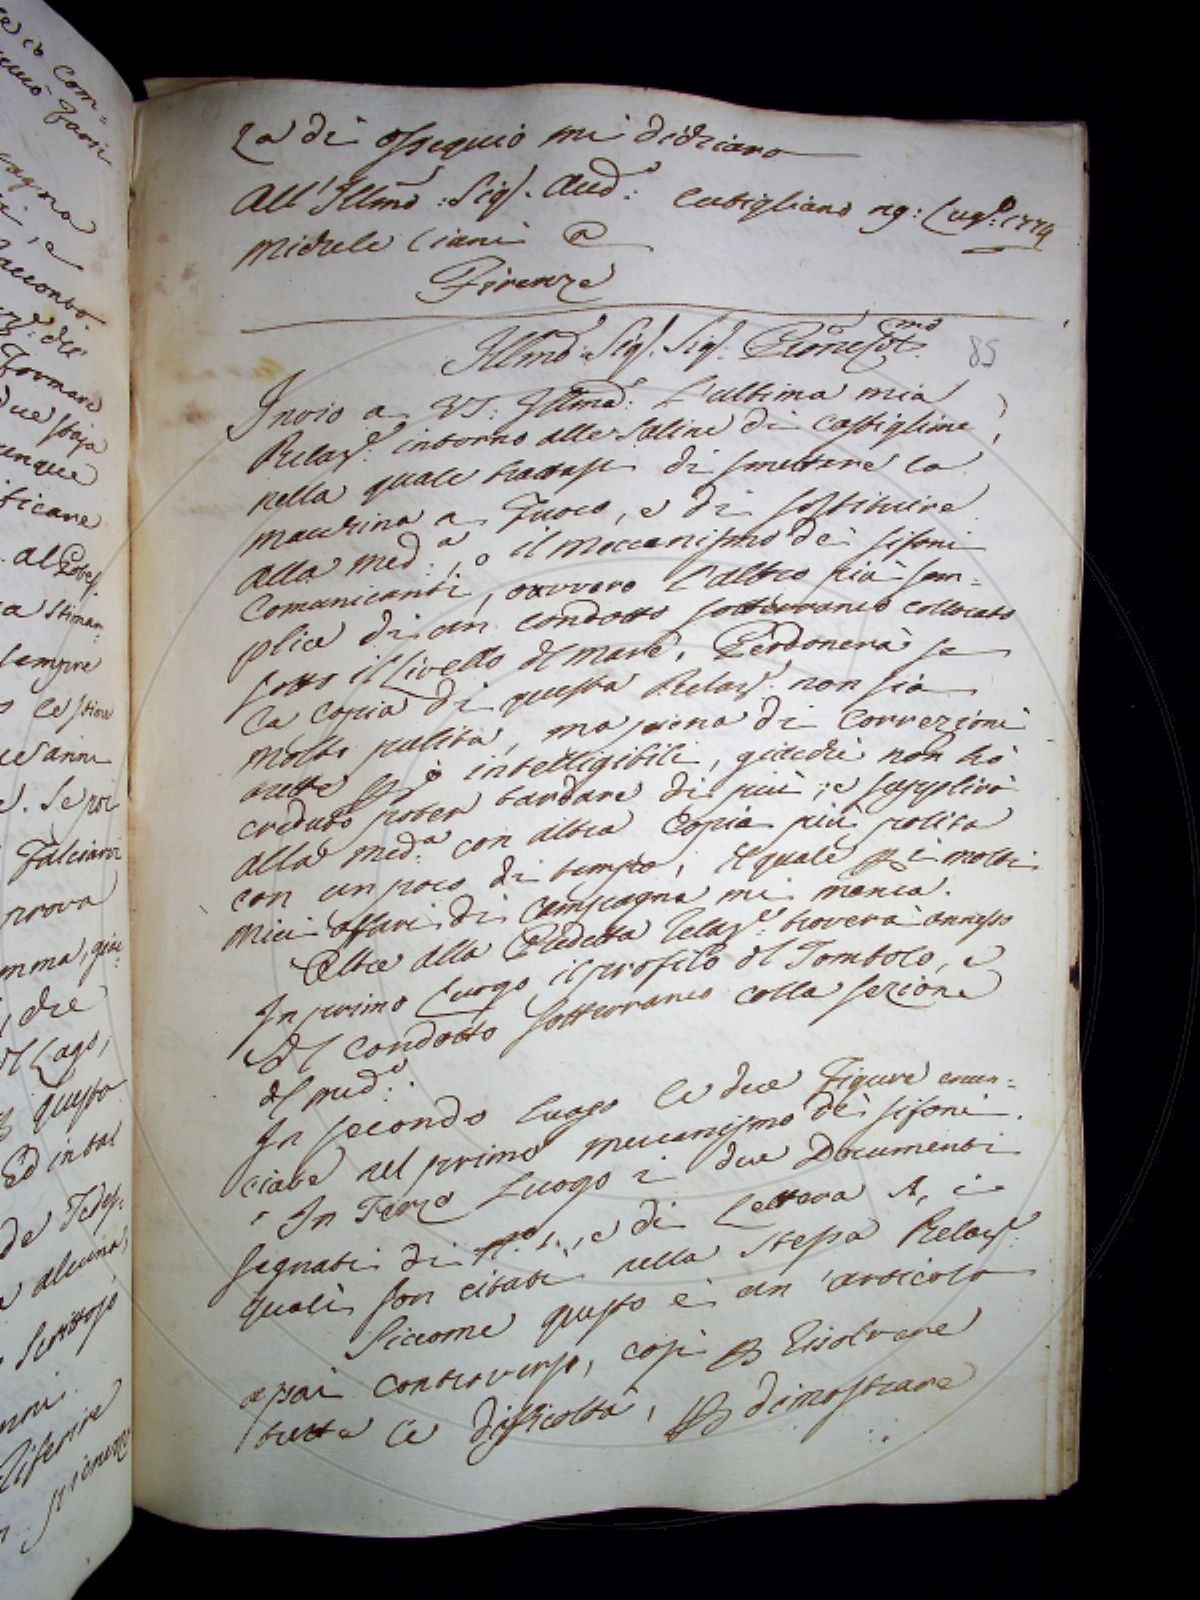 za di ossequio mi dichiaro
All' Illmo: Sigr. Aud:e Cutigliano 29: Lugo: 1774
Michele Ciani a
Firenze
Illmo Sigr. Sigr. Prone Colmo
85
Invio a VS: Illma: l'ultima mia
Relaze: intorno alle Saline di Castiglione,
nella quale trattasi di smettere la
macchina a Fuoco, e di sostituire
alla meda:, o il Meccanismo dei sifoni
Comunicanti, ovvero l'altro più sem=
plice di un condotto sotterraneo collocato
sotto il Livello del mare. Perdonerà se
la copia di questa Relaze: non sia
molto pulita, ma piena di Correzioni
tutte però intelligibili, giacchè non hò
creduto poter tardare di più; e supplirò
alla meda: con altra Copia più polita
con un poco di tempo, il quale per i molti
miei affari di Campagna mi manca.
Oltre alla Predetta Relaze: troverà annesso
In primo Luogo il profilo del Tombolo, e
del condotto sotterraneo colla sezione
del mede:
In secondo luogo le due Figure enun=
ciate nel primo meccanismo dei sifoni.
In Terzo Luogo i due Documenti
segnati di no: 1:, e di Lettera A, i
quali son citati nella stessa Relaze:
Siccome questo è un articolo
assai controverso, così per risolvere
tutte le difficoltà, per dimostrare
al
stimar
sempre
anni
Se poi
prova
che
del Lago,
questo
Ed in tal
alcuna,
Scrittojo